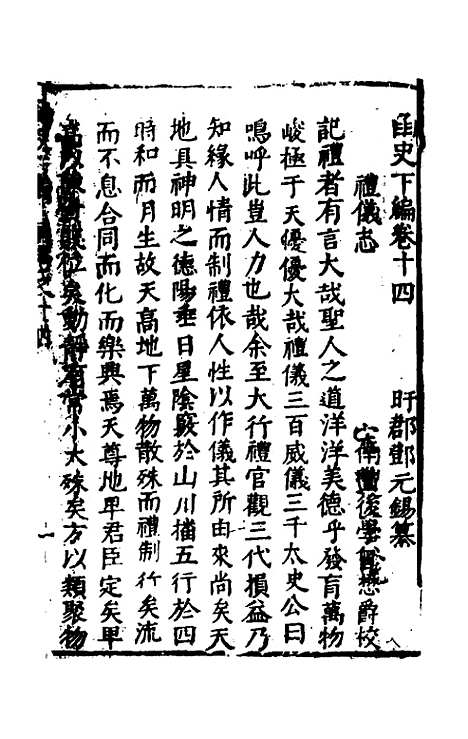 史下編卷十四 旴郡鄧元錫纂
禮儀志 後學 爵校
記禮者有言大哉聖人之道洋洋美德乎發育萬物
峻極于天優優大哉禮儀三百威儀三千太史公曰
嗚呼此豈人力也哉余至大行禮官觀三代損益乃
知緣人情而制禮依人性以作儀其所由來尚矣天
地具神明之德陽垂日星陰竅於山川播五行於四
時和而月生故天高地下萬物散殊而禮制行矣流
而不息合同而化而樂興焉天尊地卑君臣定矣卑
高 位矣動靜有常小大殊矣方以類聚物
一